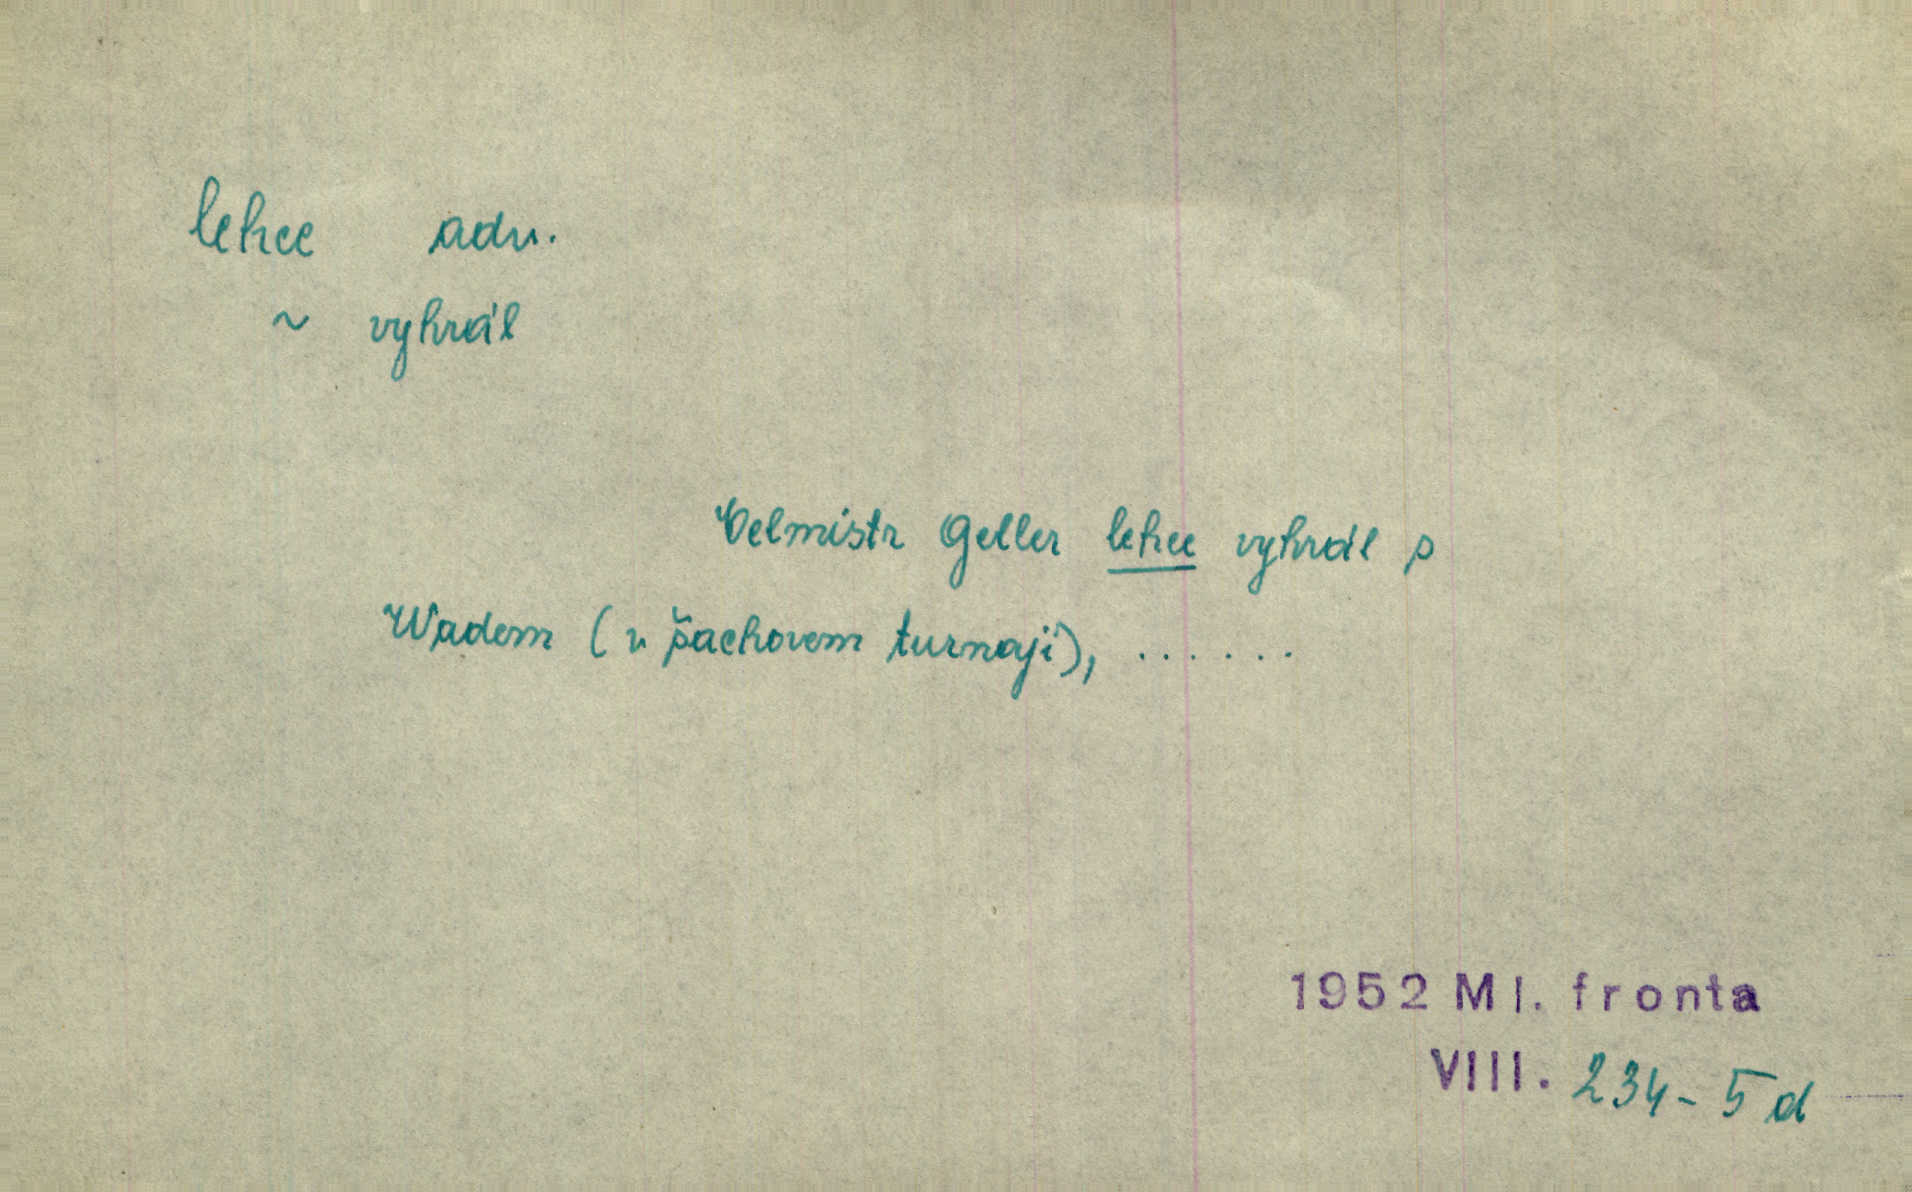 lehce adv.
~ vyhrál
Velmistr Geller lehce vyhrál s
Wadem (v šachovem turnaji), ......
1952 Ml. fronta
VIII. 234-5d